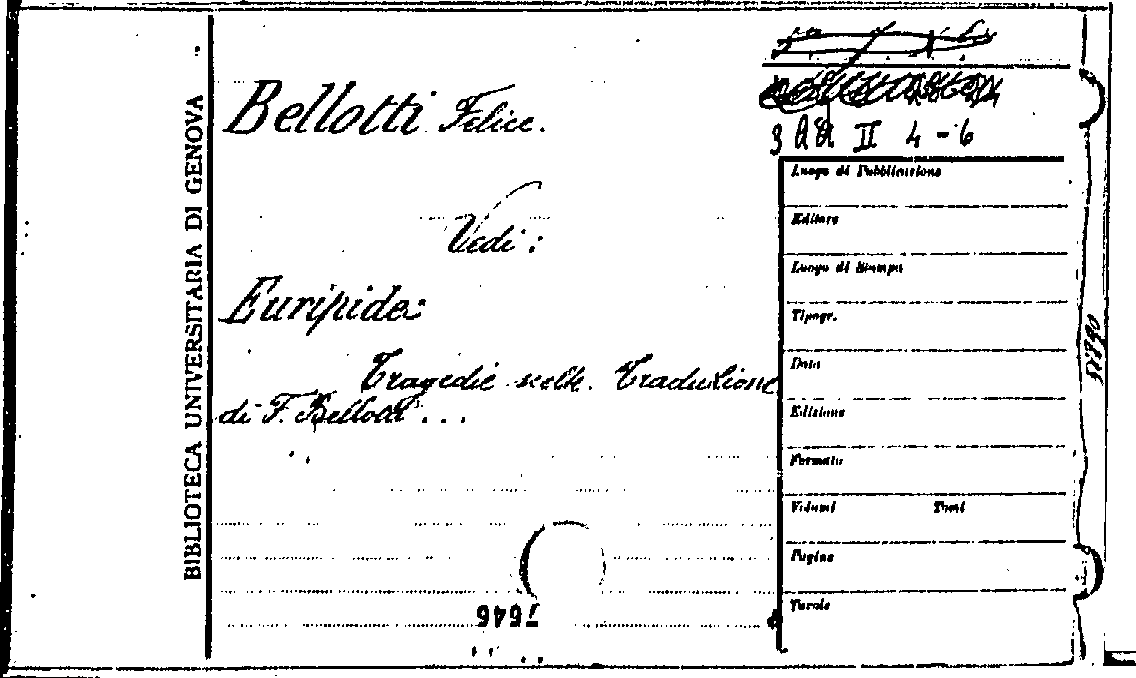 BIBLIOTECA UNIVERSITARIA DI GENOVA
Bellotti Felice.
3 II 4-6
Vedi:
Euripide:
Tragedie scelte. Traduzione
di F. Bellotti ...
Luogo di Pubblicazione
Editore
Luogo di Stampa
Tipogr.
Data
Edizione
Formato
Volumi Tomi
Pagine
Tavole
7646